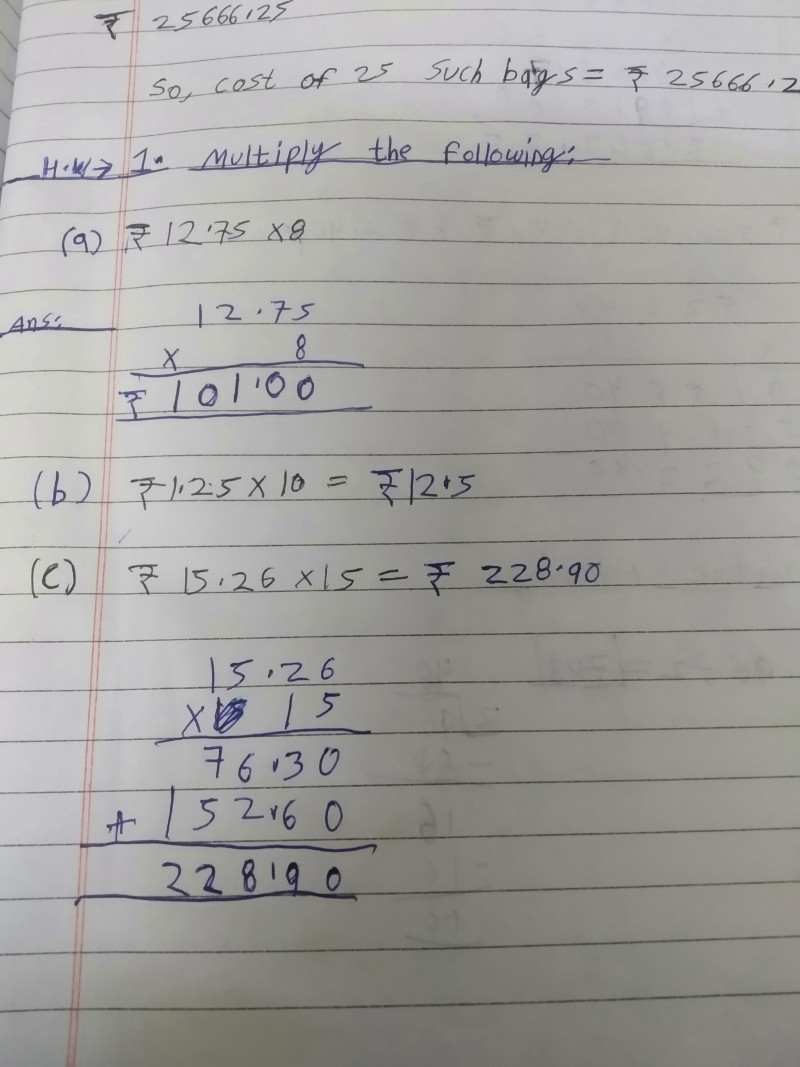 ₹ 25666.25
So, cost of 25 such bags = ₹ 25666.2
H.W→ 1. Multiply the following:
(a) ₹ 12.75 x8
Ans: 12.75
x 8
₹ 101.00
(b) ₹1.25 x 10 = ₹12.5
(c) ₹ 15.26 x15 = ₹ 228.90
15.26
x 15
76.30
+ 152.60
228.90